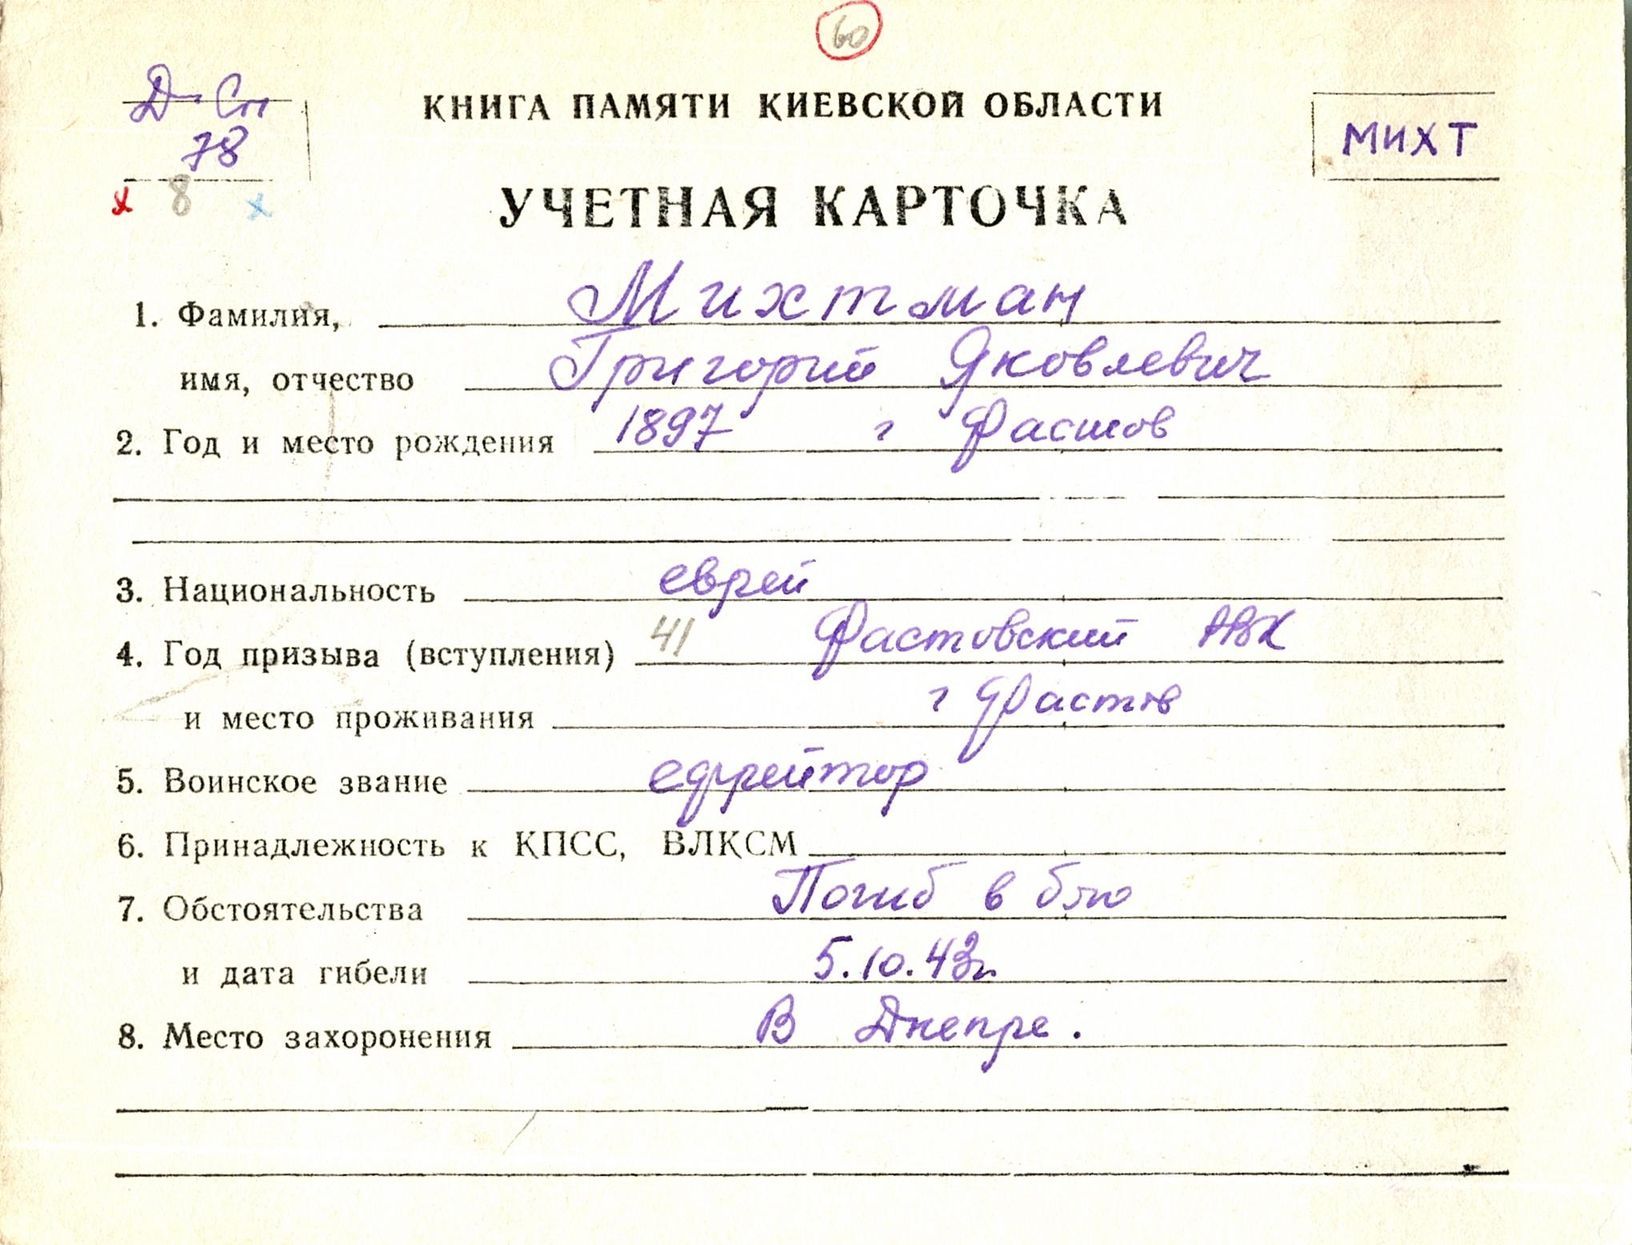 60
Д-Сп
78
х 8 х
КНИГА ПАМЯТИ КИЕВСКОЙ ОБЛАСТИ
МИХТ
УЧЕТНАЯ КАРТОЧКА
1. Фамилия, Михтман
имя, отчество Григорий Яковлевич
2. Год и место рождения 1897 г Фастов
3. Национальность еврей
4. Год призыва (вступления) 41 Фастовский РВК
и место проживания г Фастов
5. Воинское звание ефрейтор
6. Принадлежность к КПСС, ВЛКСМ
7. Обстоятельства Погиб в бою
и дата гибели 5.10.43г.
8. Место захоронения В Днепре.